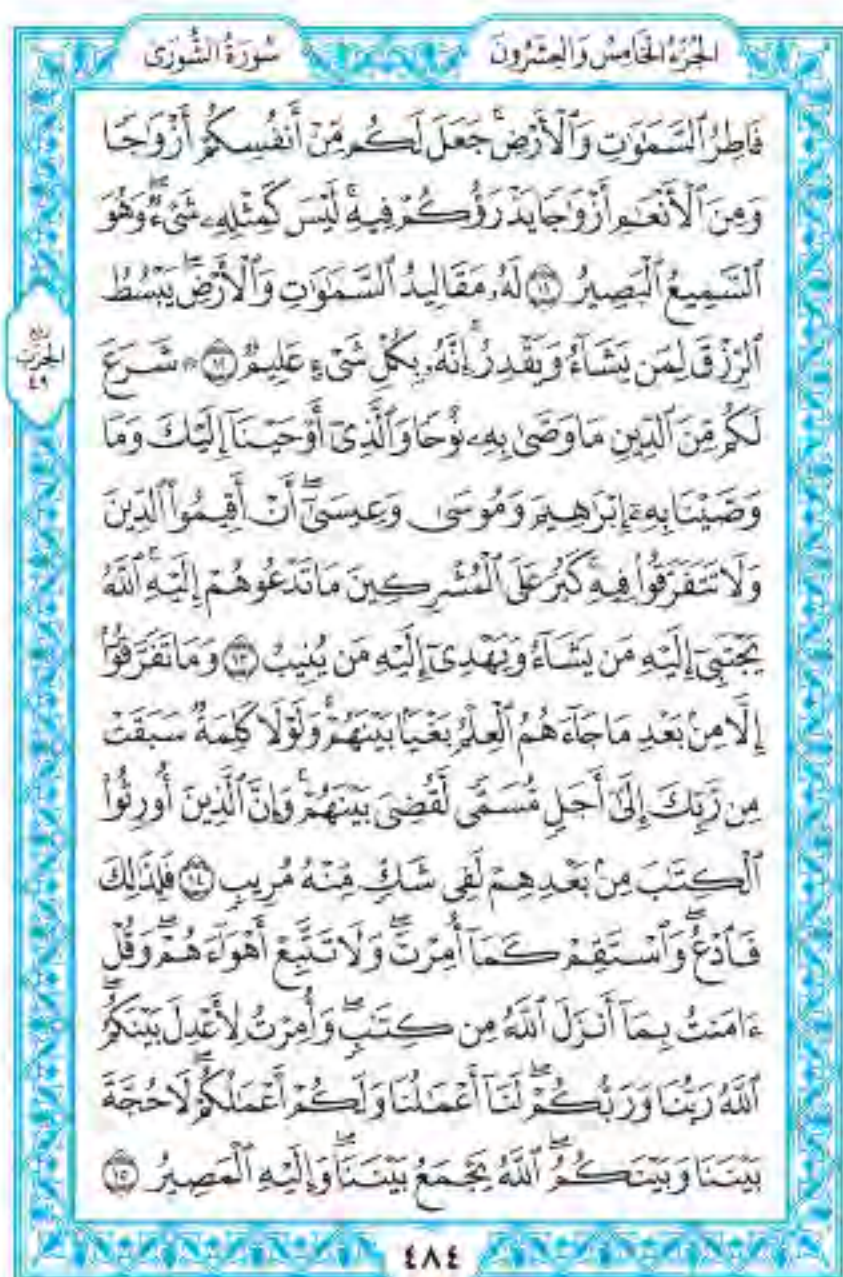 الجُزْءُ الخَامِسُ وَالعِشْرُونَ
سُورَةُ الشُّورَى
فَاطِرُ ٱلسَّمَٰوَٰتِ وَٱلْأَرْضِۚ جَعَلَ لَكُم مِّنْ أَنفُسِكُمْ أَزْوَٰجًا
وَمِنَ ٱلْأَنْعَٰمِ أَزْوَٰجًا يَذْرَؤُكُمْ فِيهِۚ لَيْسَ كَمِثْلِهِۦ شَىْءٌۖ وَهُوَ
ٱلسَّمِيعُ ٱلْبَصِيرُ ١١ لَهُۥ مَقَالِيدُ ٱلسَّمَٰوَٰتِ وَٱلْأَرْضِۖ يَبْسُطُ
ٱلرِّزْقَ لِمَن يَشَآءُ وَيَقْدِرُۚ إِنَّهُۥ بِكُلِّ شَىْءٍ عَلِيمٌ ١٢ ۞ شَرَعَ
لَكُم مِّنَ ٱلدِّينِ مَا وَصَّىٰ بِهِۦ نُوحًا وَٱلَّذِىٓ أَوْحَيْنَآ إِلَيْكَ وَمَا
وَصَّيْنَا بِهِۦٓ إِبْرَٰهِيمَ وَمُوسَىٰ وَعِيسَىٰٓۖ أَنْ أَقِيمُوا۟ ٱلدِّينَ
وَلَا تَتَفَرَّقُوا۟ فِيهِۚ كَبُرَ عَلَى ٱلْمُشْرِكِينَ مَا تَدْعُوهُمْ إِلَيْهِۚ ٱللَّهُ
يَجْتَبِىٓ إِلَيْهِ مَن يَشَآءُ وَيَهْدِىٓ إِلَيْهِ مَن يُنِيبُ ١٣ وَمَا تَفَرَّقُوٓا۟
إِلَّا مِنۢ بَعْدِ مَا جَآءَهُمُ ٱلْعِلْمُ بَغْيًۢا بَيْنَهُمْۚ وَلَوْلَا كَلِمَةٌ سَبَقَتْ
مِن رَّبِّكَ إِلَىٰٓ أَجَلٍ مُّسَمًّى لَّقُضِىَ بَيْنَهُمْۚ وَإِنَّ ٱلَّذِينَ أُورِثُوا۟
ٱلْكِتَٰبَ مِنۢ بَعْدِهِمْ لَفِى شَكٍّ مِّنْهُ مُرِيبٍ ١٤ فَلِذَٰلِكَ
فَٱدْعُۖ وَٱسْتَقِمْ كَمَآ أُمِرْتَۖ وَلَا تَتَّبِعْ أَهْوَآءَهُمْۖ وَقُلْ
ءَامَنتُ بِمَآ أَنزَلَ ٱللَّهُ مِن كِتَٰبٍۖ وَأُمِرْتُ لِأَعْدِلَ بَيْنَكُمُۖ
ٱللَّهُ رَبُّنَا وَرَبُّكُمْۖ لَنَآ أَعْمَٰلُنَا وَلَكُمْ أَعْمَٰلُكُمْۖ لَا حُجَّةَ
بَيْنَنَا وَبَيْنَكُمُۖ ٱللَّهُ يَجْمَعُ بَيْنَنَاۖ وَإِلَيْهِ ٱلْمَصِيرُ ١٥
الحِزْب
٤٩
٤٨٤